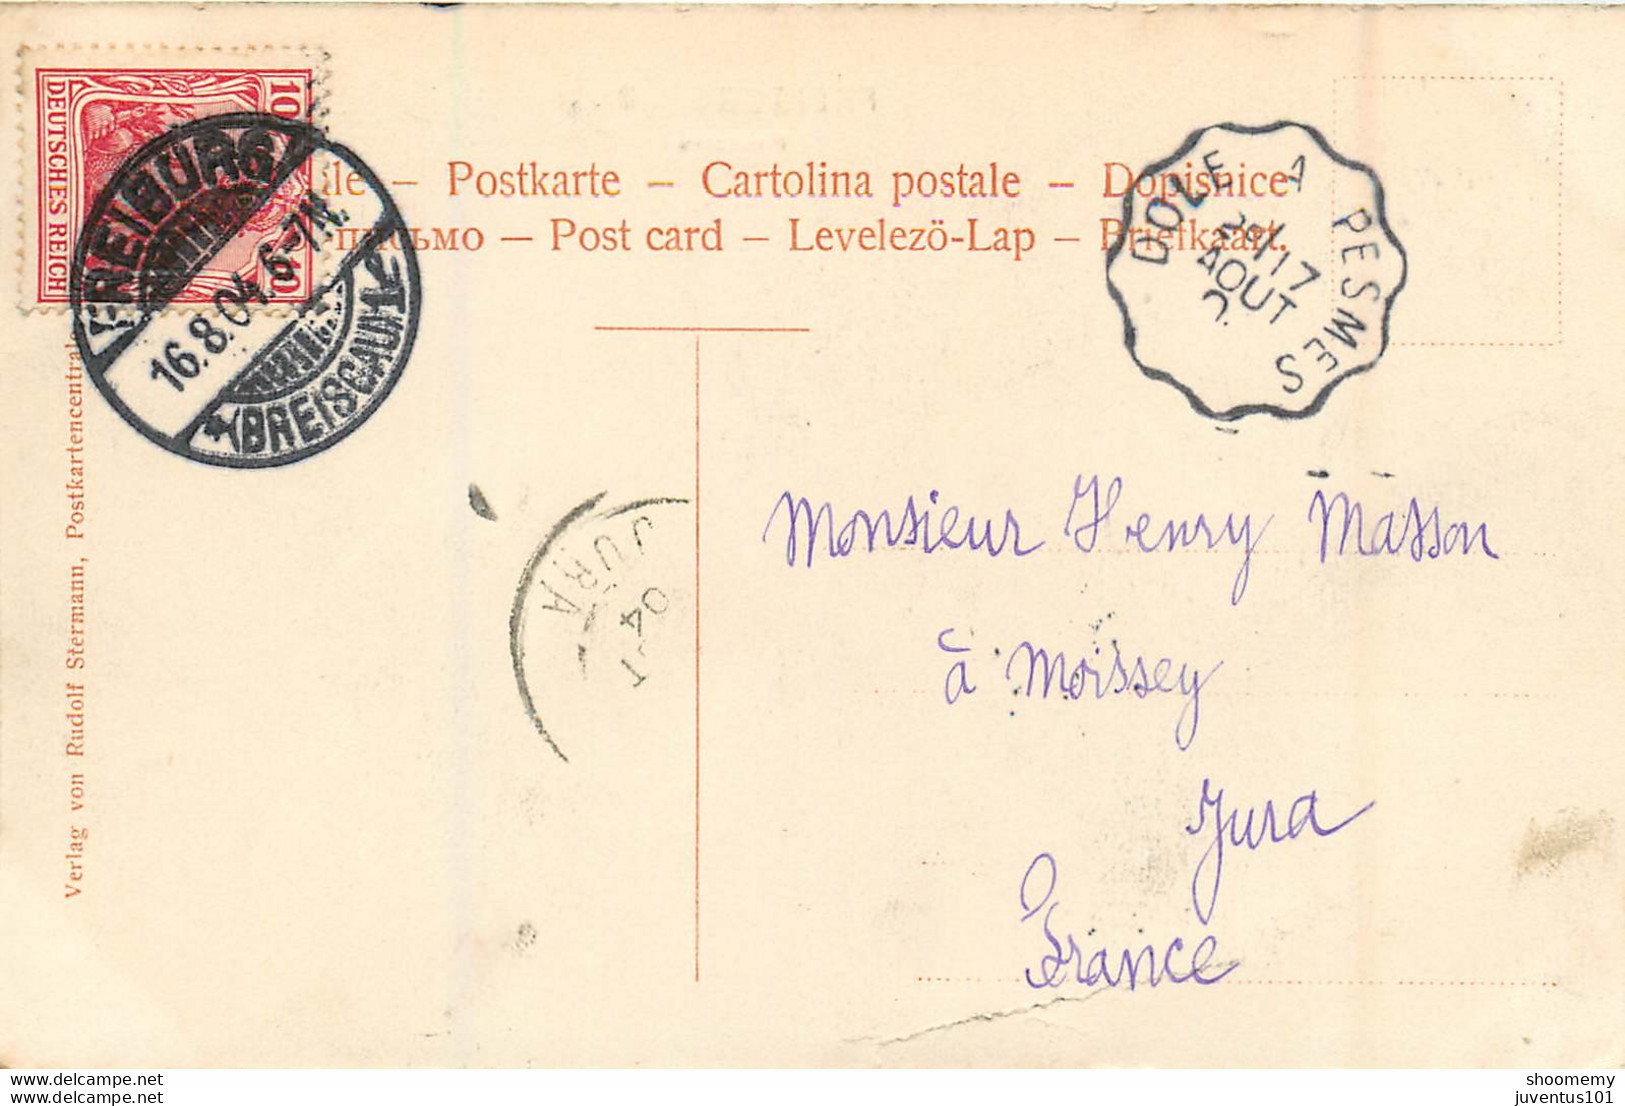 DEUTSCHES REICH
10
10
FREIBURG
16.8.04. 6-7N.
(BREISGAU)
Postkarte – Cartolina postale – Dopisnice
Post card – Levelezö-Lap – Briefkaart.
DOLE A PESMES
17
AOUT
JURA
04
Monsieur Henry Masson
à Moissey
Jura
France
Verlag von Rudolf Stermann, Postkartencentrale
delcampe.net
shoomemy
juventus101